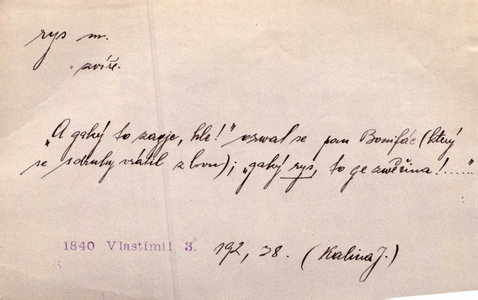 rys m.
= zvíře.
„A gaký to zagjc, hle!" ozwal se pan Bonifác (který
se s druhy vrátil z lovu); „gaký rys, to ge zwěřina!....."
1840 Vlastimil 3. 192, 38. (Kalina J.)